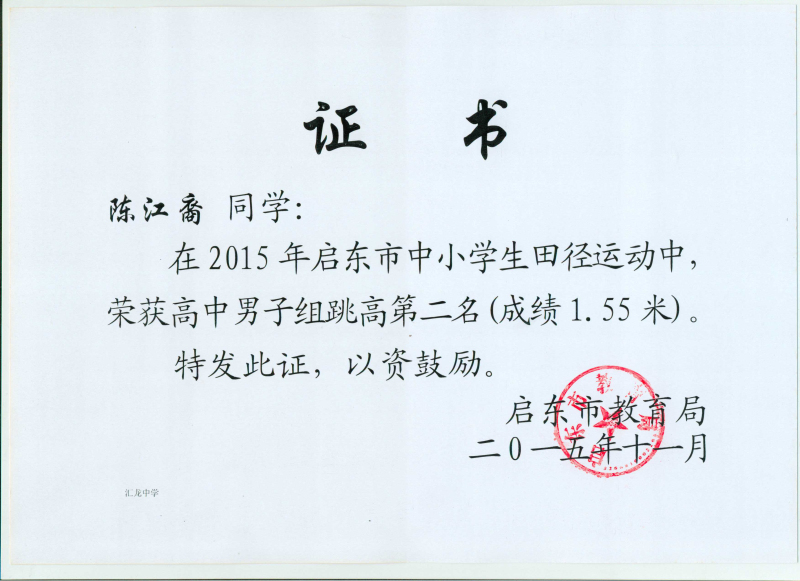 证 书
陈江裔 同学：
在2015年启东市中小学生田径运动中，
荣获高中男子组跳高第二名(成绩1.55米)。
特发此证，以资鼓励。
启东市教育局
二0一五年十一月
启东市教育局
汇龙中学